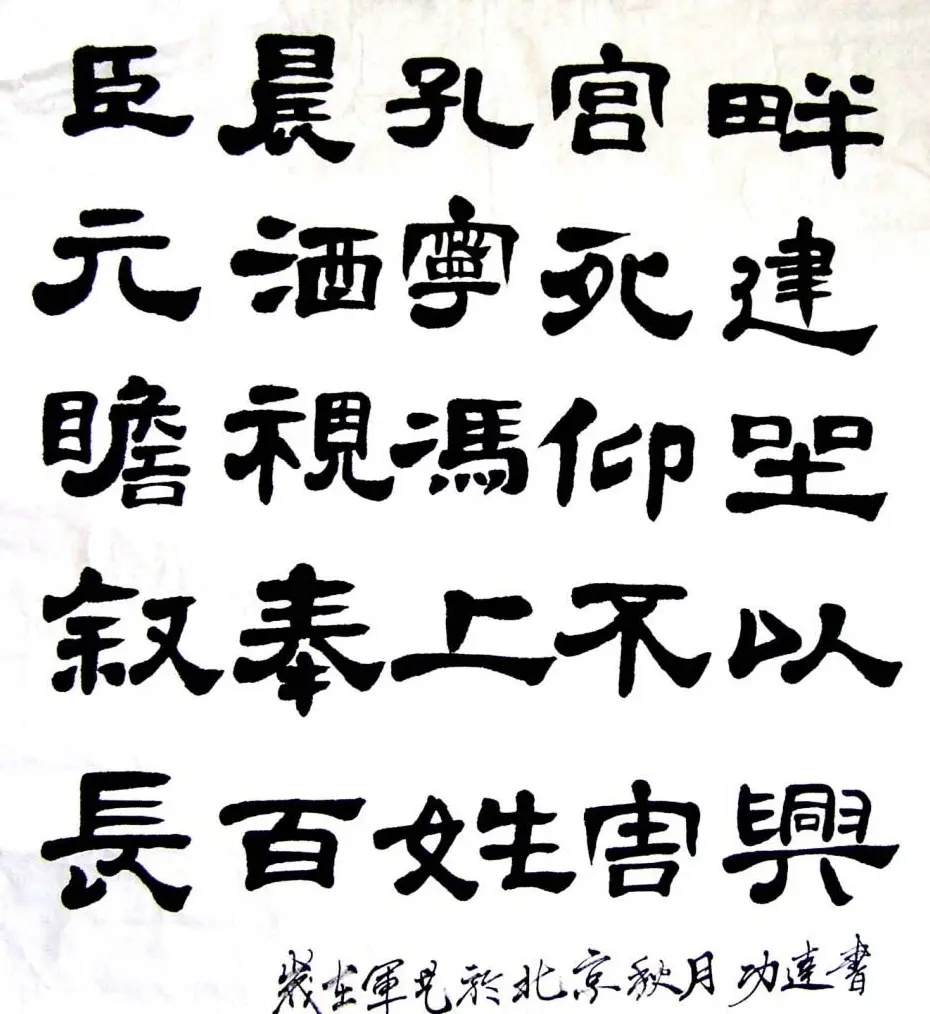 臣晨孔宫畔
元酒寧死建
瞻視馮仰坐
叙奉上不以
長百姓害興
歲在 於北京秋月功達書